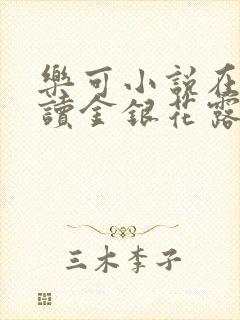 樂可小說在
讀金銀花露
三木李子